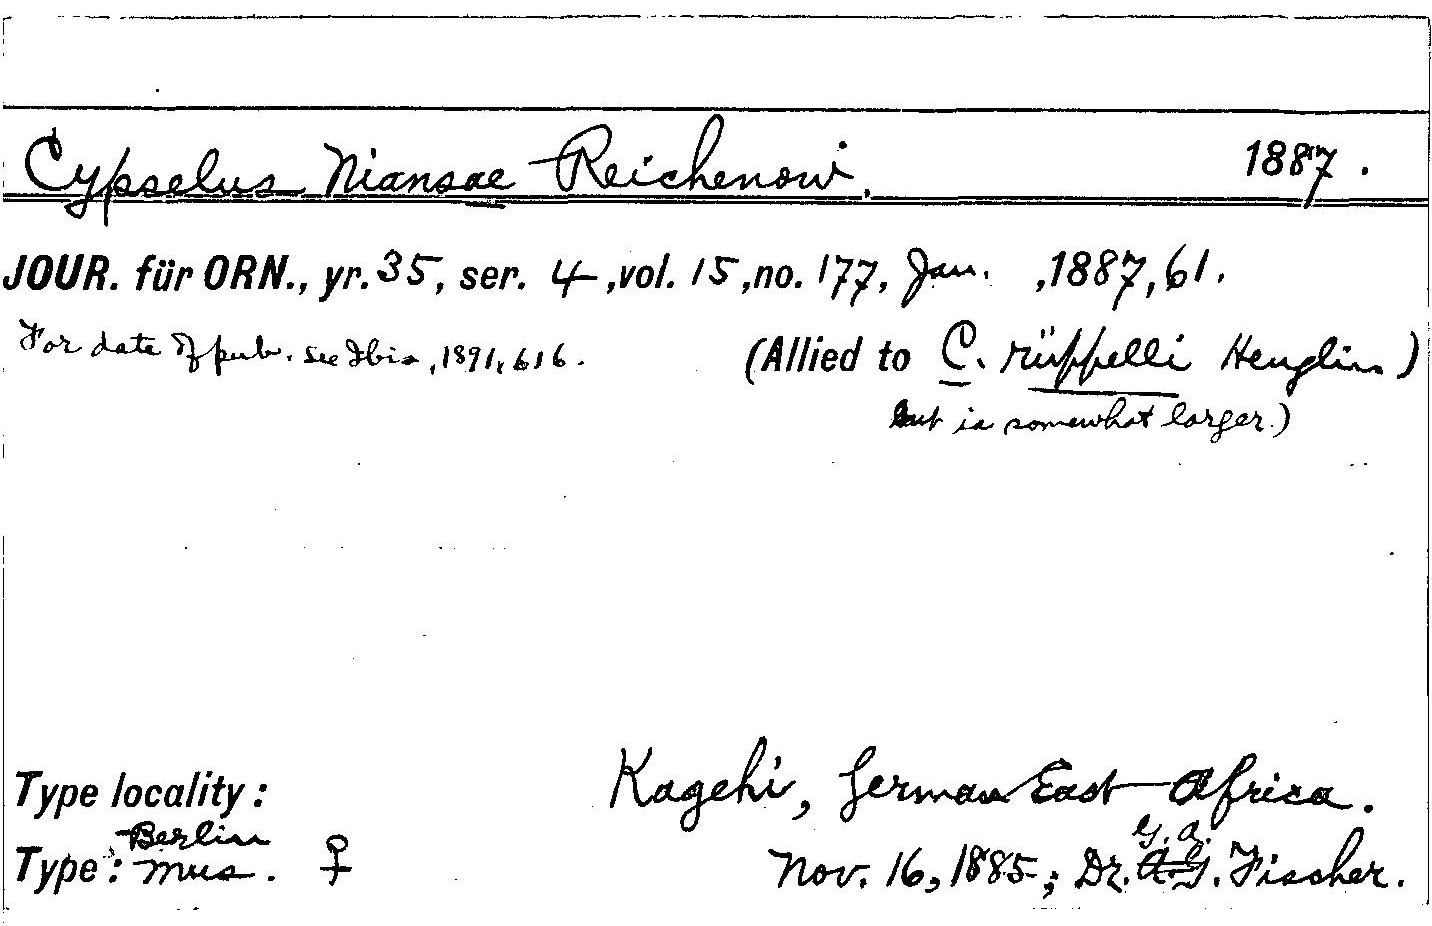 Cypselus Niansae Reichenow. 1887.
JOUR. für ORN., yr. 35, ser. 4, vol. 15, no. 177, Jan. , 1887, 61.
For date of pub. see Ibis, 1891, 616. (Allied to C. rüppelli Heuglin.)
but is somewhat larger.)
Type locality: Kagehi, German East Africa.
Type: Berlin Mus. ♀ Nov. 16, 1885; Dr. A.G. G.A. Fischer.